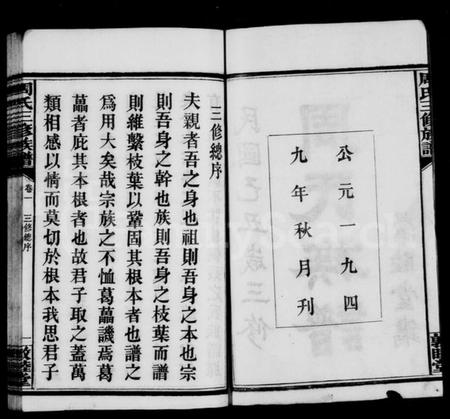 周氏三修族譜
公元一九四
九年秋月刊
民國己丑歲三修
三修總序
夫親者吾之身也祖則吾身之本也宗
則吾身之幹也族則吾身之枝葉而譜
則維繫枝葉以鞏固其根本者也譜之
爲用大矣哉宗族之不恤葛藟譏焉葛
藟者庇其本根者也故君子取之蓋萬
類相感以情而莫切於根本我思君子
周氏三修族譜
卷一
三修總序
一
敦睦堂